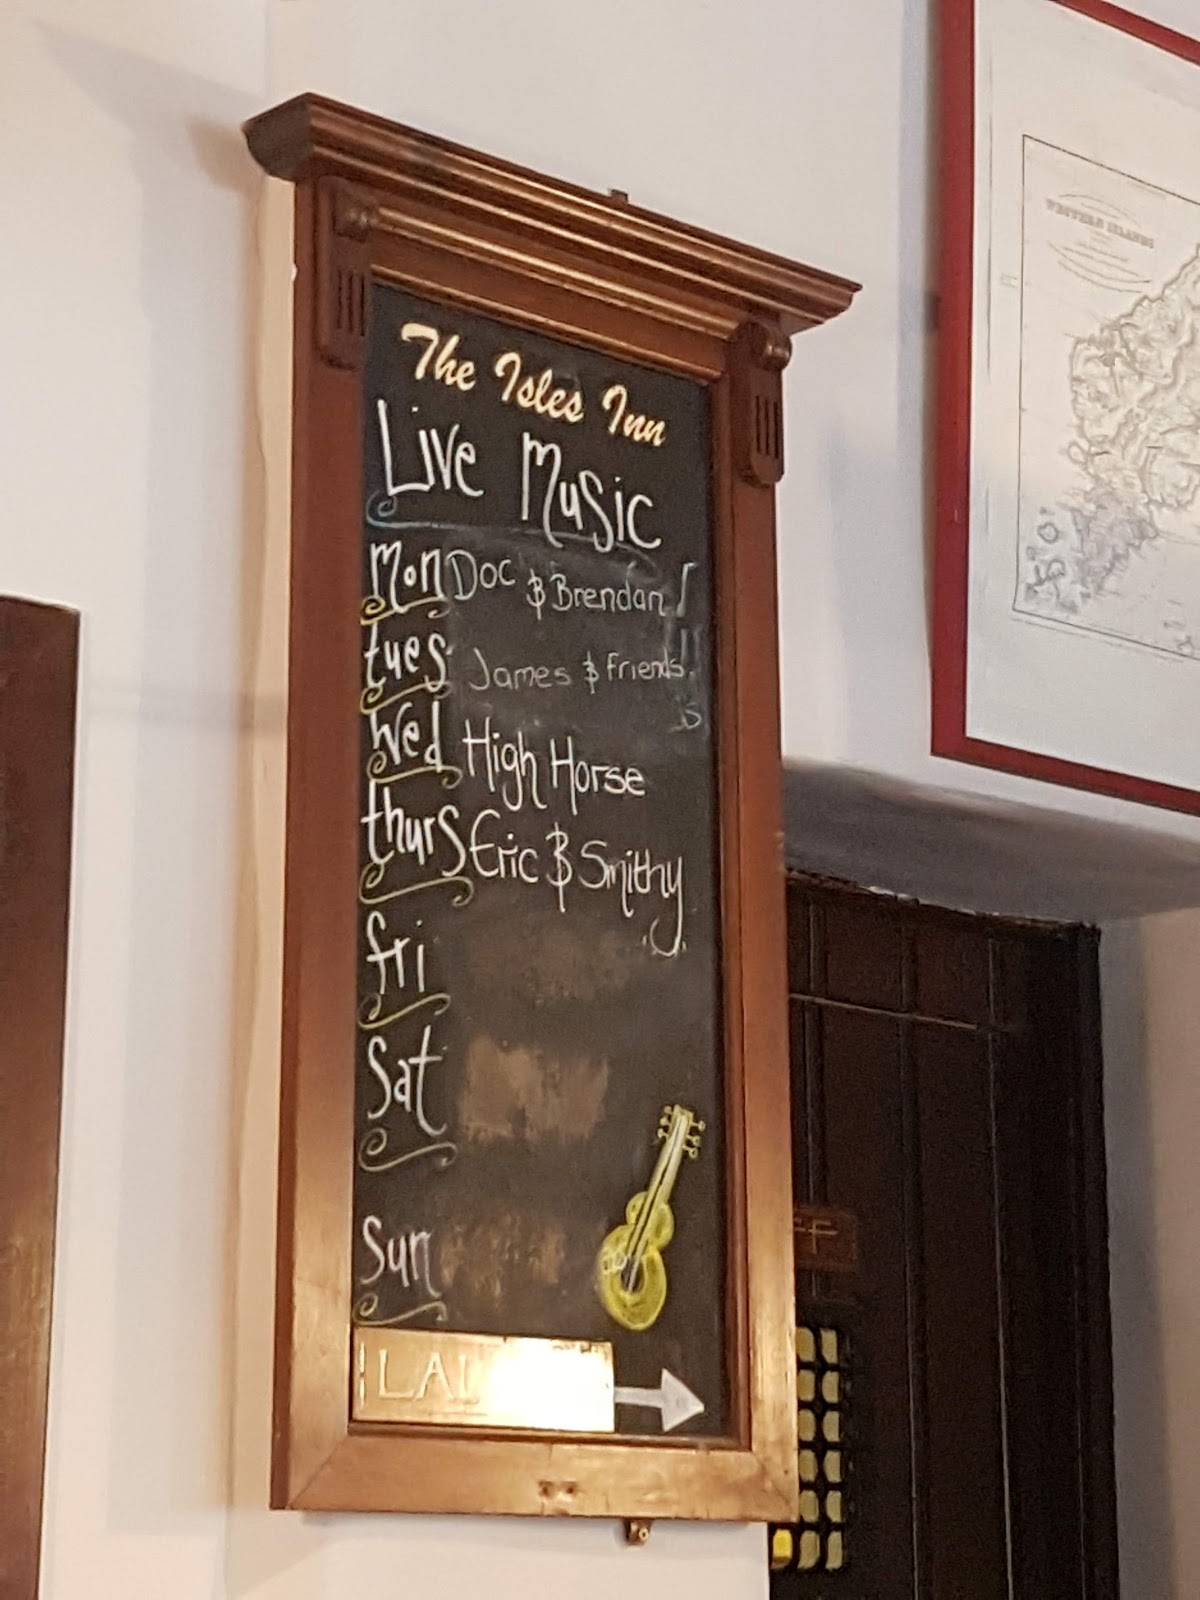 The Isles Inn
Live Music
Mon Doc & Brendan
tues James & Friends
Wed High Horse
thurs Eric & Smithy
fri
Sat
Sun
WESTERN ISLANDS